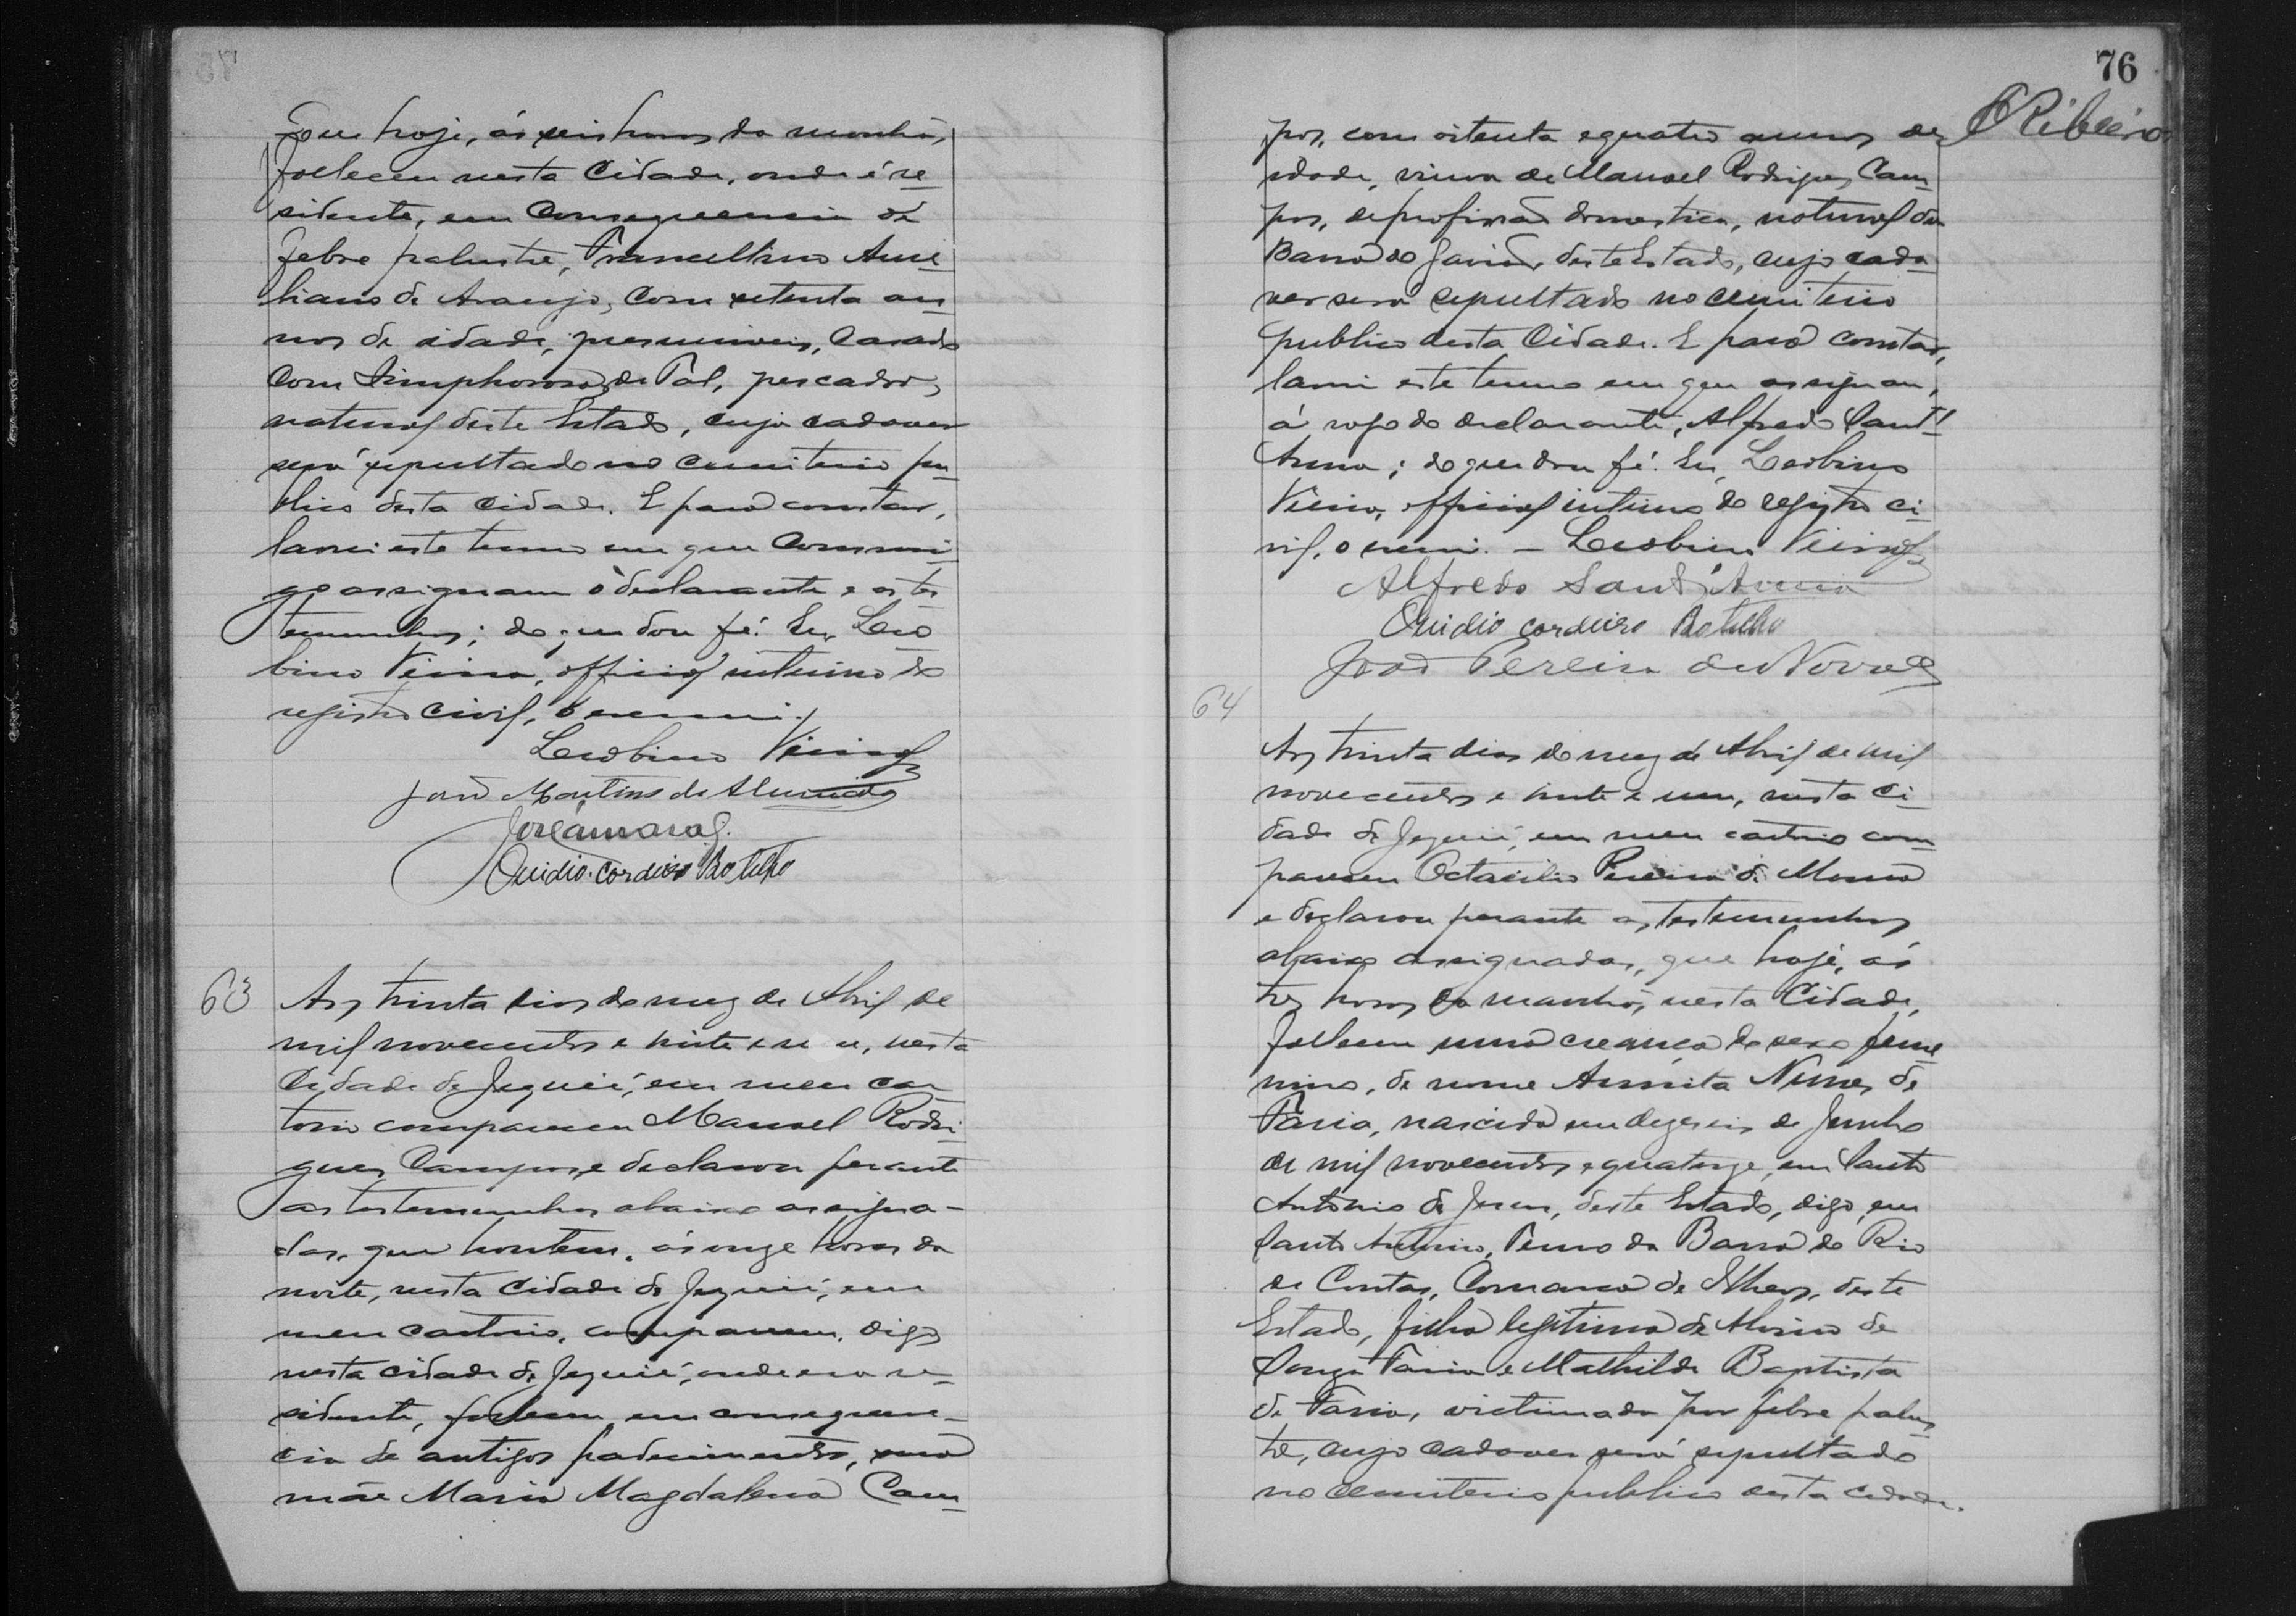 que hoje, ás seis horas da manhã,
falleceu nesta Cidade, onde é re-
sidente, em consequencia de
febre palustre, Francellino Aure-
liano de Araujo, com setenta an-
nos de idade, presumiveis, casado
com Simphorosa de Tal, pescador,
natural deste Estado, cujo cadaver
será sepultado no cemiterio pu-
blico desta Cidade. E para constar,
lavrei este termo em que commi-
go assignam o declarante e as tes-
temunhas; do que dou fé. Eu, Leo-
bino Vieira, official interino do
registro civil, o escrevi.
Leobino Vieira
João Martins de Almeida
José Amaral
Ouidio Cordeiro Botelho
63
Aos trinta dias do mez de Abril de
mil novecentos e vinte e um, nesta
Cidade de Jequié, em meu car-
torio compareceu Manoel Rodri-
gues Campos, e declarou perante
as testemunhas abaixo assigna-
das, que hontem, ás onze horas da
noite, nesta Cidade de Jequié, em
meu cartorio, compareceu, digo
nesta cidade de Jequié, onde era re-
sidente, falleceu, em consequen-
cia de antigos padecimentos, sua
mãe Maria Magdalena Cam-
76
Ribeiro
pos, com oitenta e quatro annos de
idade, viuva de Manoel Rodrigues Cam-
pos, de profissão domestica, natural da
Barra do deste Estado, cujo cada-
ver será sepultado no cemiterio
publico desta Cidade. E para constar,
lavrei este termo em que assignam,
á rogo do declarante, Alfredo Sant'
Anna; do que dou fé. Eu, Leobino
Vieira, official interino do registro ci-
vil, o escrevi. - Leobino Vieira
Alfredo Sant'Anna
Ouidio Cordeiro Botelho
João Pereira de Novaes
64
Aos trinta dias do mez de Abril de mil
novecentos e vinte e um, nesta Ci-
dade de Jequié, em meu cartorio com-
pareceu Octacilio Pereira de
e declarou perante as testemunhas
abaixo assignadas, que hoje, ás
tres horas da manhã, nesta Cidade,
falleceu uma creança do sexo feme-
nino, de nome Nunes de
Faria, nascida em dezeseis de Junho
de mil novecentos e quatorze, em Santo
Antonio de Jesus, deste Estado, digo, em
Santo Antonio, Termo da Barra do Rio
de Contas, Comarca de Ilheos, deste
Estado, filha legitima de de
Souza Faria e Mathilde Baptista
de Faria, victimada por febre palus-
tre, cujo cadaver será sepultado
no cemiterio publico desta cidade.